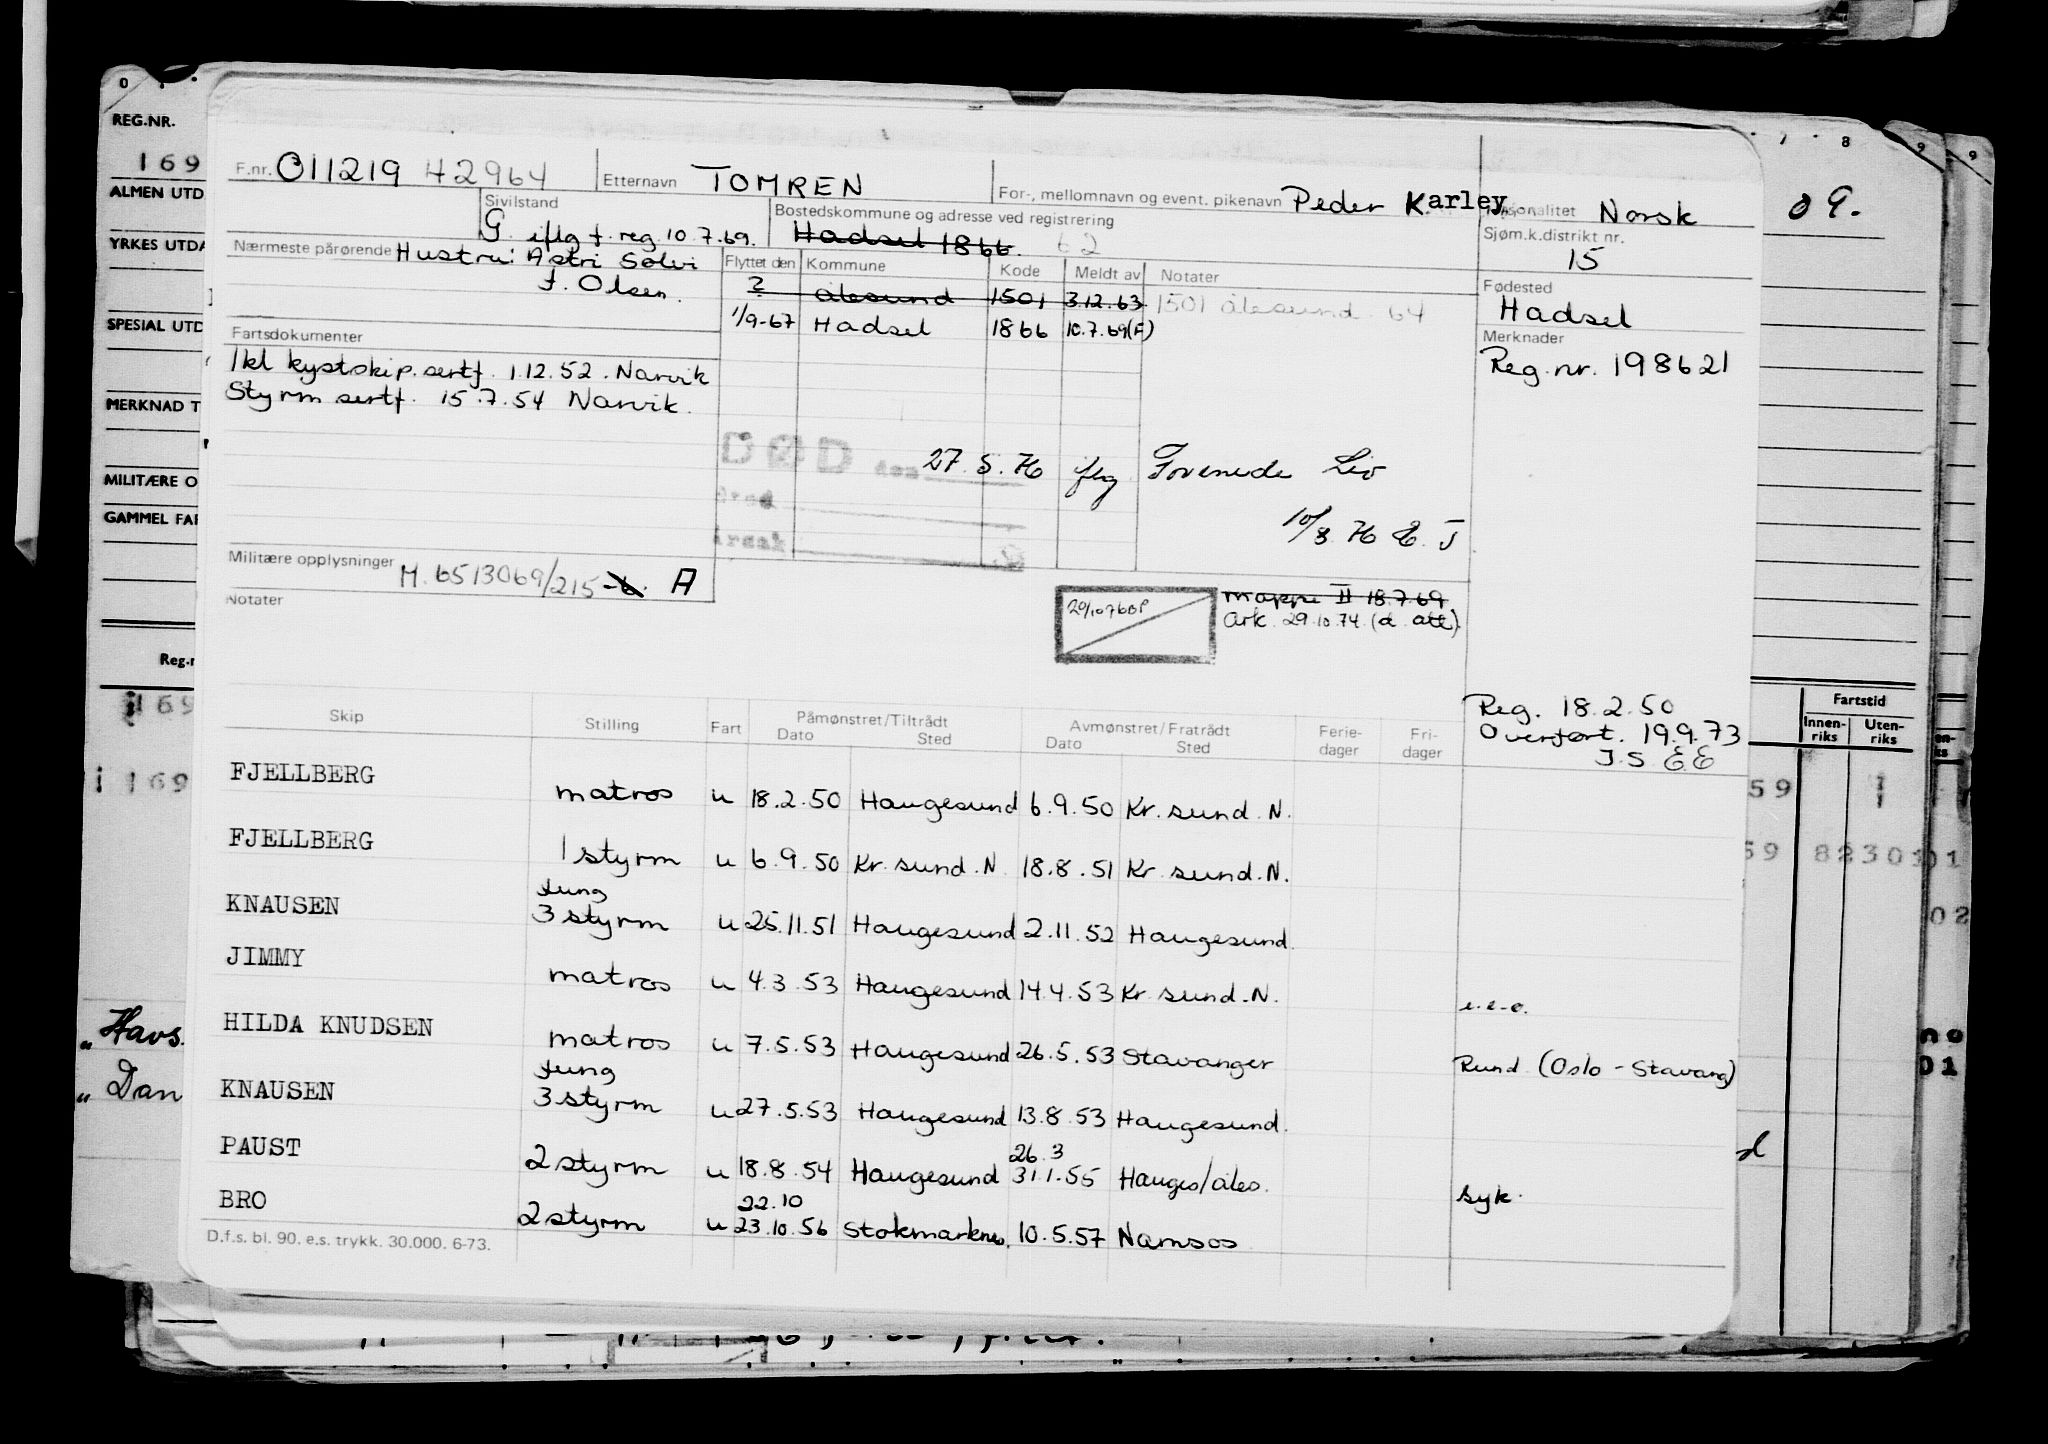 REG.NR.
169
ALMEN UTD
YRKES UTDA
SPESIAL UTD
MERKNAD T
MILITÆRE O
GAMMEL FAR
Reg.r
169
i 169
„ Havs.
„ Dan
F.nr. 011219 42964 Etternavn TOMREN For-, mellomnavn og event. pikenavn Peder Karley Nasjonalitet Norsk
09.
Sivilstand G. iflg f. reg 10.7.69. Bostedskommune og adresse ved registrering Hadsel 1866. 62
Sjøm.k.distrikt nr. 15
Nærmeste pårørende Hustru: Astri Sølvi
f. Olsen.
Flyttet den Kommune Kode Meldt av Notater
? Ålesund 1501 3.12.63 1501 Ålesund 64
1/9-67 Hadsel 1866 10.7.69(F)
Fødested
Hadsel
Merknader
Reg.nr. 198621
Fartsdokumenter
1kl kystskip.sertf. 1.12.52. Narvik
Styrm sertf. 15.7.54 Narvik.
DØD den 27.5.76 iflg Forenede Liv
Sted
Årsak
10/8 76 E.J
Militære opplysninger M.6513069/215-6. A
Notater
29/10 76 BP
Mappe II 18.7.69
Ark. 29.10.74. (d. att)
Reg. 18.2.50
Overført. 19.9.73
J.S. E.E
Skip Stilling Fart Påmønstret/Tiltrådt Avmønstret/Fratrådt Ferie-dager Fri-dager
Dato Sted Dato Sted
FJELLBERG matros u 18.2.50 Haugesund 6.9.50 Kr.sund.N.
FJELLBERG 1styrm u 6.9.50 Kr.sund.N 18.8.51 Kr.sund.N.
KNAUSEN fung 3styrm u 25.11.51 Haugesund 2.11.52 Haugesund.
JIMMY matros u 4.3.53 Haugesund 14.4.53 Kr.sund.N. e.e.o.
HILDA KNUDSEN matros u 7.5.53 Haugesund 26.5.53 Stavanger Rund (Oslo - Stavang)
KNAUSEN fung 3styrm u 27.5.53 Haugesund 13.8.53 Haugesund.
26.3
PAUST 2styrm u 18.8.54 Haugesund 31.1.55 Hauges/Åles. syk.
22.10
BRO 2styrm u 23.10.56 Stokmarknes. 10.5.57 Namsos
D.f.s. bl. 90. e.s. trykk. 30.000. 6-73.
Fartstid
Innen-riks Uten-riks
59 1
59 82301 01
02
01